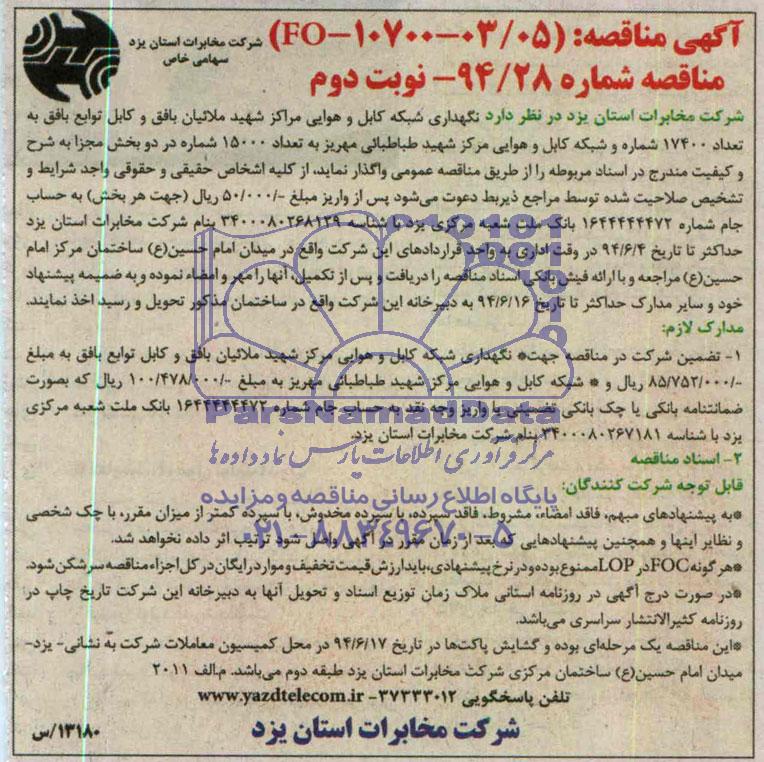 آگهی مناقصه: (FO-۱۰۷۰۰-۰۳/۰۵)
شرکت مخابرات استان یزد
سهامی خاص
مناقصه شماره ۹۴/۲۸- نوبت دوم
شرکت مخابرات استان یزد در نظر دارد نگهداری شبکه کابل و هوایی مراکز شهید ملائیان بافق و کابل توابع بافق به
تعداد ۱۷۴۰۰ شماره و شبکه کابل و هوایی مرکز شهید طباطبائی مهریز به تعداد ۱۵۰۰۰ شماره در دو بخش مجزا به شرح
و کیفیت مندرج در اسناد مربوطه را از طریق مناقصه عمومی واگذار نماید، از کلیه اشخاص حقیقی و حقوقی واجد شرایط و
تشخیص صلاحیت شده توسط مراجع ذیربط دعوت می‌شود پس از واریز مبلغ -/۵۰/۰۰۰ ریال (جهت هر بخش) به حساب
جام شماره ۱۶۴۴۴۴۴۴۷۲ بانک ملت شعبه مرکزی یزد با شناسه ۳۴۰۰۰۸۰۲۶۸۱۲۹ بنام شرکت مخابرات استان یزد
حداکثر تا تاریخ ۹۴/۶/۴ در وقت اداری به واحد قراردادهای این شرکت واقع در میدان امام حسین(ع) ساختمان مرکز امام
حسین(ع) مراجعه و با ارائه فیش بانکی اسناد مناقصه را دریافت و پس از تکمیل، آنها را مهر و امضاء نموده و به ضمیمه پیشنهاد
خود و سایر مدارک حداکثر تا تاریخ ۹۴/۶/۱۶ به دبیرخانه این شرکت واقع در ساختمان مذکور تحویل و رسید اخذ نمایند.
مدارک لازم:
۱- تضمین شرکت در مناقصه جهت* نگهداری شبکه کابل و هوایی مرکز شهید ملائیان بافق و کابل توابع بافق به مبلغ
-/۸۵/۷۵۳/۰۰۰ ریال و * شبکه کابل و هوایی مرکز شهید طباطبائی مهریز به مبلغ -/۱۰۰/۴۷۸/۰۰۰ ریال که بصورت
ضمانتنامه بانکی یا چک بانکی تضمینی یا واریز وجه نقد به حساب جام شماره ۱۶۴۴۴۴۴۴۷۲ بانک ملت شعبه مرکزی
یزد با شناسه ۳۴۰۰۰۸۰۲۶۷۱۸۱ بنام شرکت مخابرات استان یزد.
ParsNamadData
مرکز فرآوری اطلاعات پارس نماد داده‌ها
۲- اسناد مناقصه
قابل توجه شرکت کنندگان:
پایگاه اطلاع رسانی مناقصه و مزایده
*به پیشنهادهای مبهم، فاقد امضاء، مشروط، فاقد سپرده، با سپرده مخدوش، با سپرده کمتر از میزان مقرر، با چک شخصی
۰۲۱-۸۸۳۴۹۶۷۰-۵
و نظایر اینها و همچنین پیشنهادهایی که بعد از زمان مقرر در آگهی واصل شود ترتیب اثر داده نخواهد شد.
*هر گونه FOC در LOP ممنوع بوده و در نرخ پیشنهادی، باید ارزش قیمت تخفیف و موارد رایگان در کل اجزاء مناقصه سرشکن شود.
*در صورت درج آگهی در روزنامه استانی ملاک زمان توزیع اسناد و تحویل آنها به دبیرخانه این شرکت تاریخ چاپ در
روزنامه کثیرالانتشار سراسری می‌باشد.
*این مناقصه یک مرحله‌ای بوده و گشایش پاکت‌ها در تاریخ ۹۴/۶/۱۷ در محل کمیسیون معاملات شرکت به نشانی- یزد-
میدان امام حسین(ع) ساختمان مرکزی شرکت مخابرات استان یزد طبقه دوم می‌باشد. م.الف ۲۰۱۱
تلفن پاسخگویی ۳۷۳۳۳۰۱۲- www.yazdtelecom.ir
شرکت مخابرات استان یزد
۱۳۱۸۰/س